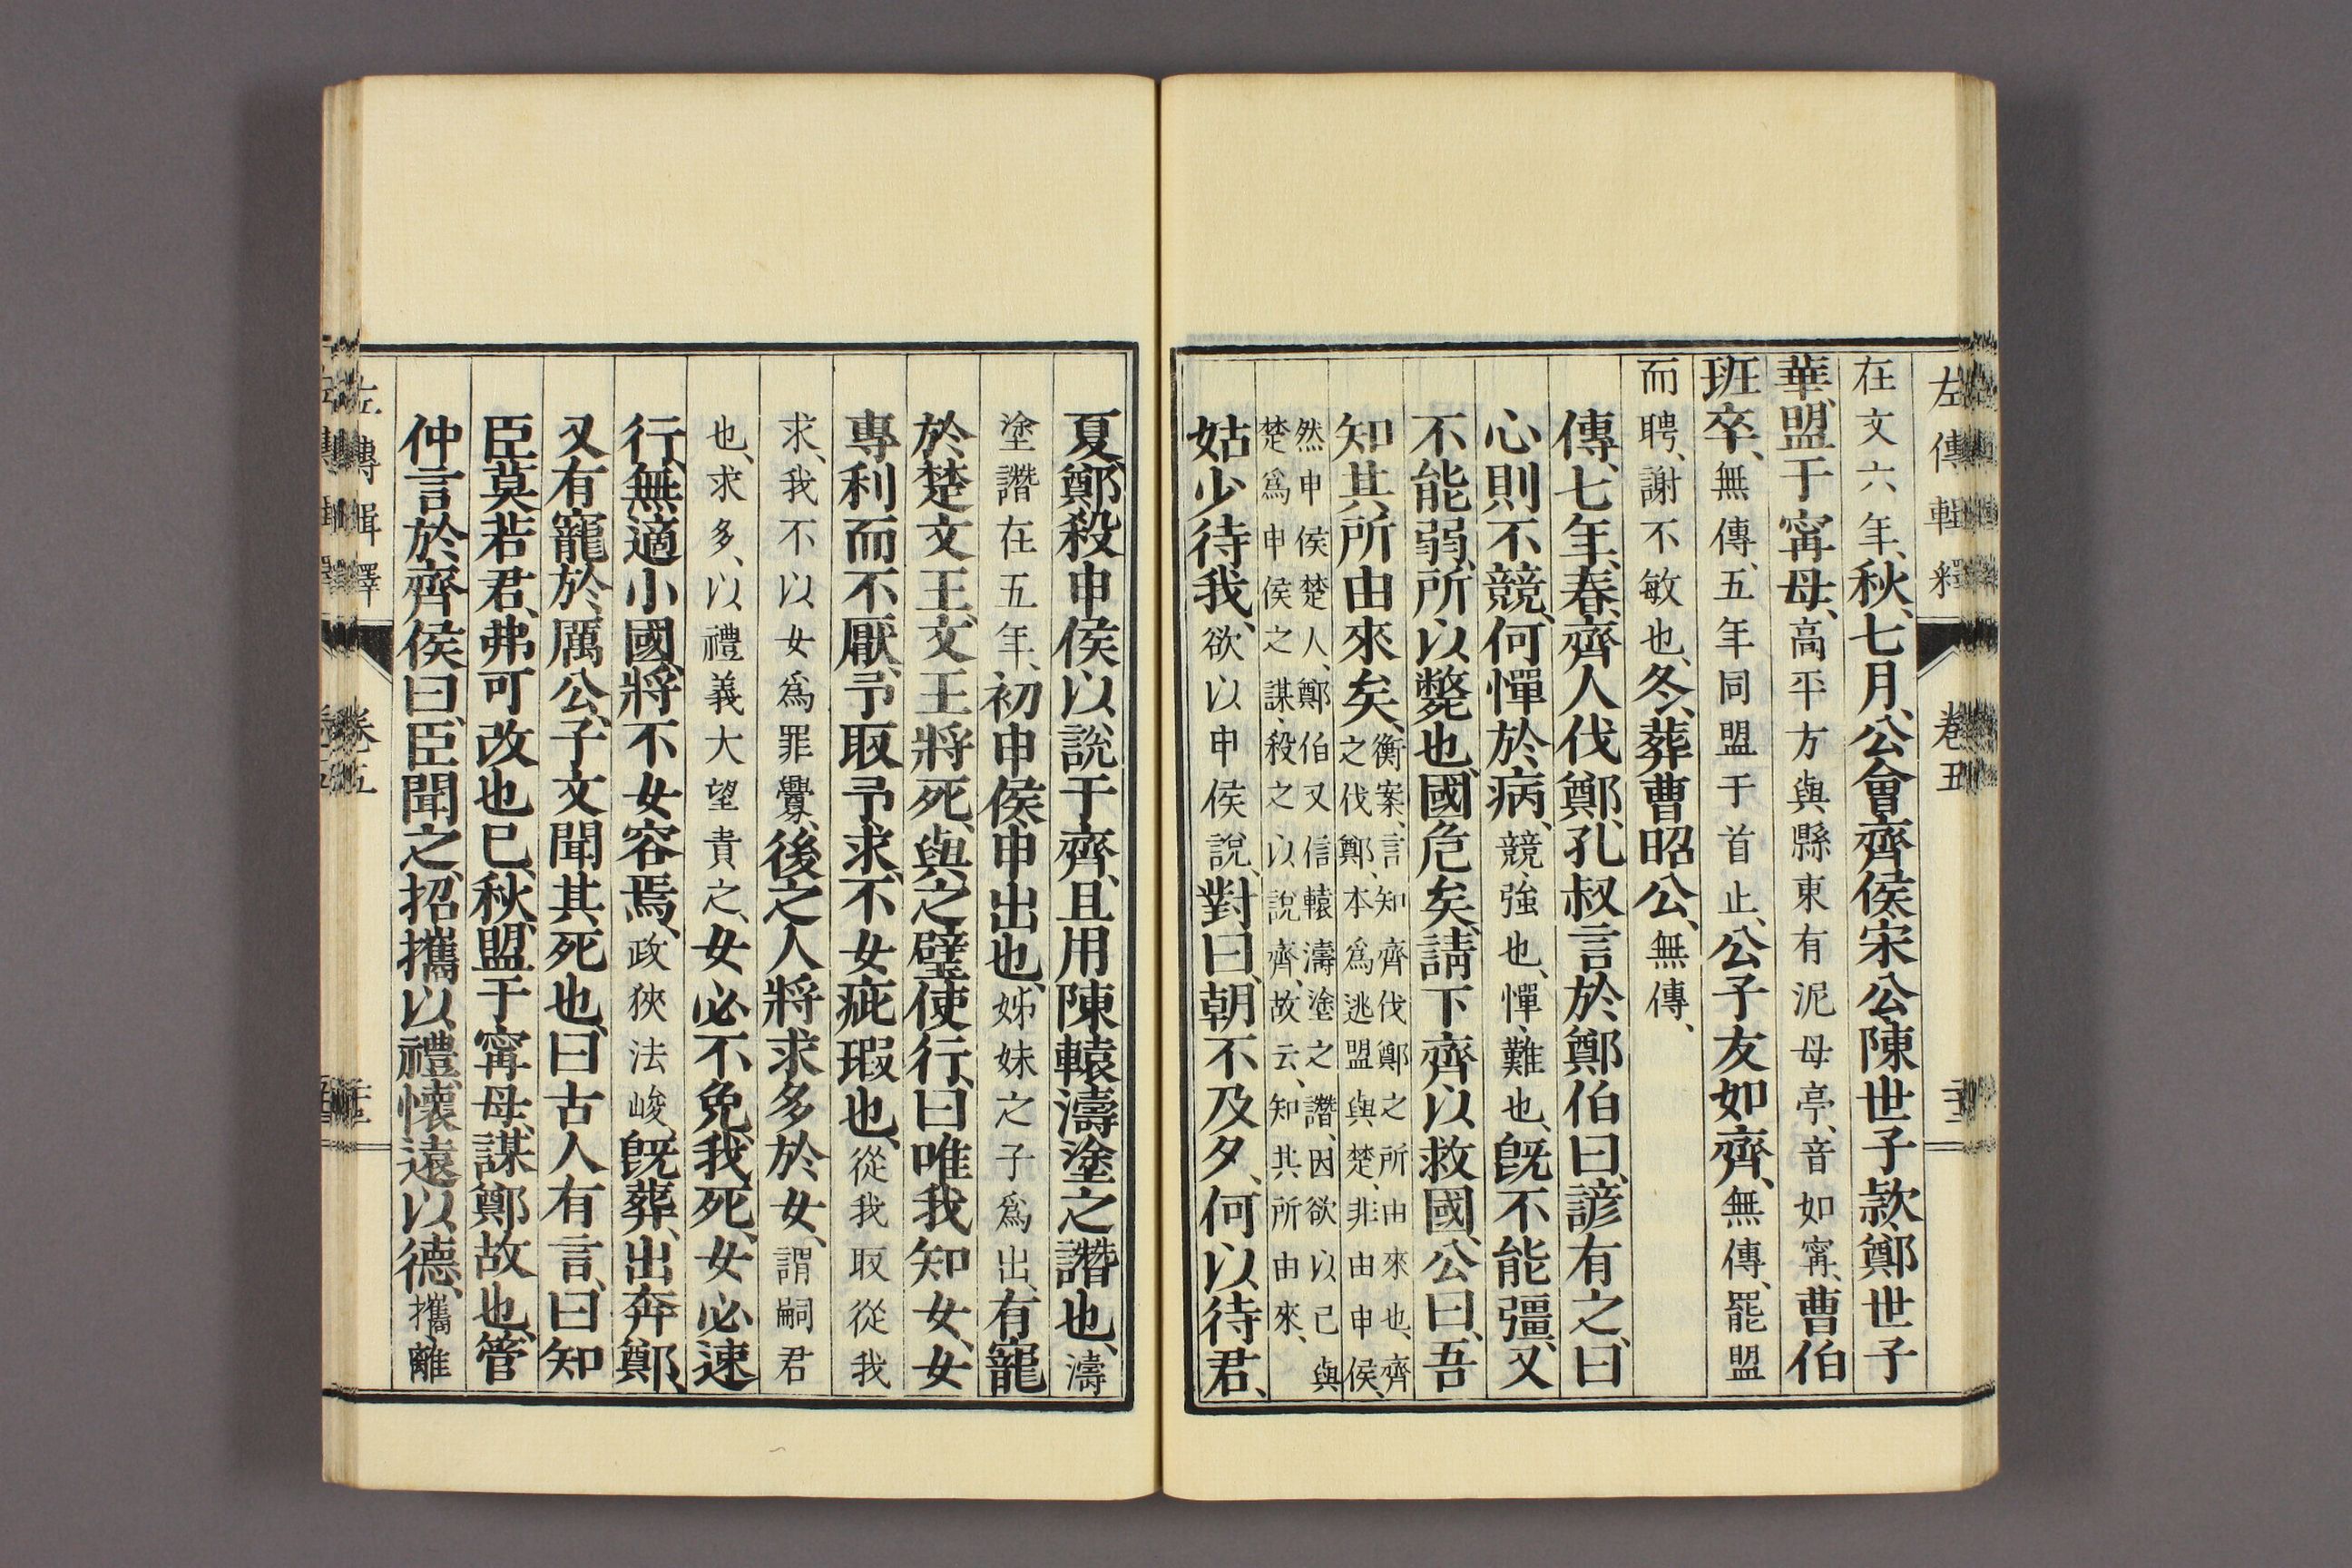 左傳輯釋 卷五
在文六年、秋、七月、公會齊侯、宋公、陳世子款、鄭世子
華、盟于甯母、高平方與縣東有泥母亭、音如甯、曹伯
班卒、無傳、五年同盟于首止、公子友如齊、無傳、罷盟
而聘、謝不敏也、冬、葬曹昭公、無傳、
傳、七年、春、齊人伐鄭、孔叔言於鄭伯曰、諺有之、曰
心則不競、何憚於病、競、強也、憚、難也、旣不能彊、又
不能弱、所以斃也、國危矣、請下齊以救國、公曰、吾
知其所由來矣、衡案、言知齊伐鄭之所由來也、齊
之伐鄭、本爲逃盟與楚、非由申侯、
然申侯楚人、鄭伯又信轅濤塗之譖、因欲以己與
楚爲申侯之謀、殺之以說齊、故云、知其所由來、
姑少待我、欲以申侯說、對曰、朝不及夕、何以待君、
夏、鄭殺申侯以說于齊、且用陳轅濤塗之譖也、濤
塗譖在五年、初申侯申出也、姊妹之子爲出、有寵
於楚文王、文王將死、與之璧使行、曰、唯我知女、女
專利而不厭、予取予求、不女疵瑕也、從我取從我
求、我不以女爲罪釁、後之人將求多於女、謂嗣君
也、求多、以禮義大望責之、女必不免、我死、女必速
行、無適小國、將不女容焉、政狹法峻、旣葬、出奔鄭、
又有寵於厲公、子文聞其死也、曰、古人有言、曰知
臣莫若君、弗可改也已、秋、盟于甯母、謀鄭故也、管
仲言於齊侯曰、臣聞之、招攜以禮、懷遠以德、攜、離
左傳輯釋 卷五